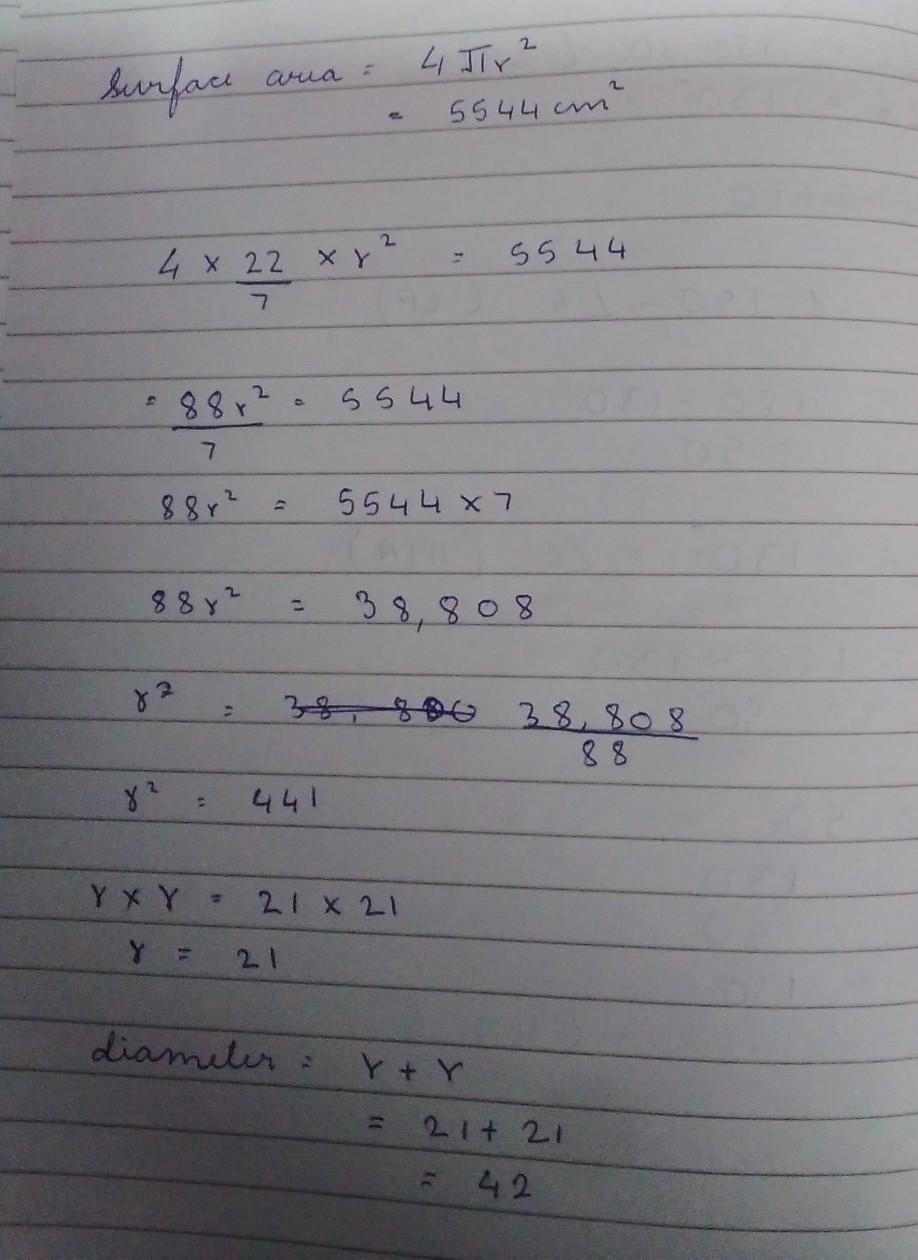 Surface area = 4πr²
= 5544 cm²
4 × 22/7 × r² = 5544
= 88r²/7 = 5544
88r² = 5544 × 7
88r² = 38,808
r² = 38,800 38,808/88
r² = 441
r × r = 21 × 21
r = 21
diameter = r + r
= 21 + 21
= 42